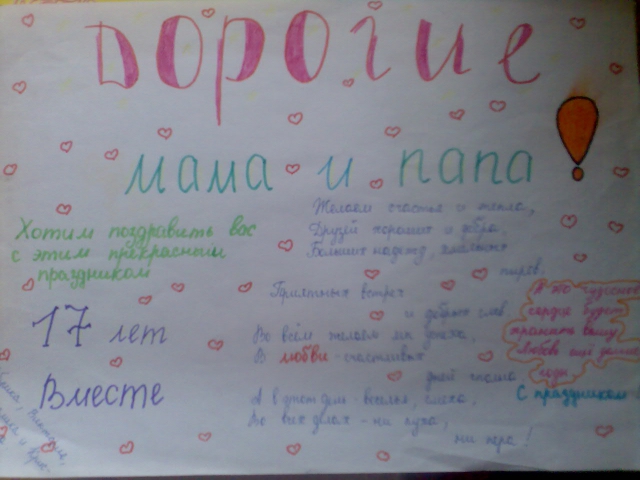 Дорогие
мама и папа!
Хотим поздравить вас
с этим прекрасным
праздником
17 лет
Вместе
Желаем счастья и тепла,
Друзей хороших и добра,
Больших надежд,
пиров.
Приятных встреч
и добрых слов.
Во всём желаем мы успеха,
В любви - счастливых
дней
А в этот день - веселья, смеха,
Во всех делах - ни пуха,
ни пера!
сердце будет
хранить вашу
Любовь ещё долгие
годы
С праздником